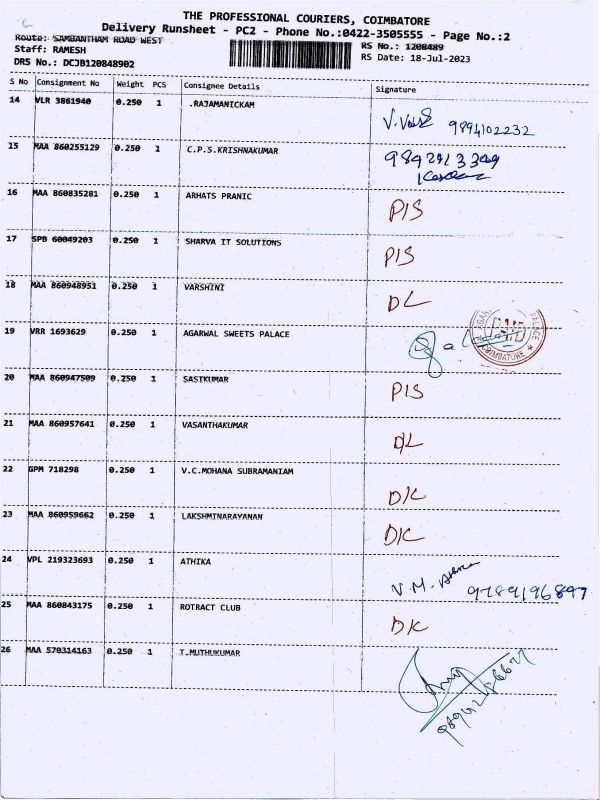 THE PROFESSIONAL COURIERS, COIMBATORE
Delivery Runsheet - PC2 - Phone No.:0422-3505555 - Page No.:2
Route: SAMBANTHAM ROAD WEST
RS No.: 1208489
Staff: RAMESH
RS Date: 18-Jul-2023
DRS No.: DCJB120848902
S No Consignment No Weight PCS Consignee Details Signature
14 VLR 3861940 0.250 1 .RAJAMANICKAM
9894102232
15 MAA 860255129 0.250 1 C.P.S.KRISHNAKUMAR
16 MAA 860835281 0.250 1 ARHATS PRANIC PIS
17 SPB 60049203 0.250 1 SHARVA IT SOLUTIONS PIS
18 MAA 860948951 0.250 1 VARSHINI DL
19 VRR 1693629 0.250 1 AGARWAL SWEETS PALACE
COIMBATORE
20 MAA 860947509 0.250 1 SASIKUMAR PIS
21 MAA 860957641 0.250 1 VASANTHAKUMAR DL
22 GPM 718298 0.250 1 V.C.MOHANA SUBRAMANIAM DK
23 MAA 860959662 0.250 1 LAKSHMINARAYANAN DK
24 VPL 219323693 0.250 1 ATHIKA V.M. 9789196897
25 MAA 860843175 0.250 1 ROTRACT CLUB DK
26 MAA 570314163 0.250 1 T.MUTHUKUMAR